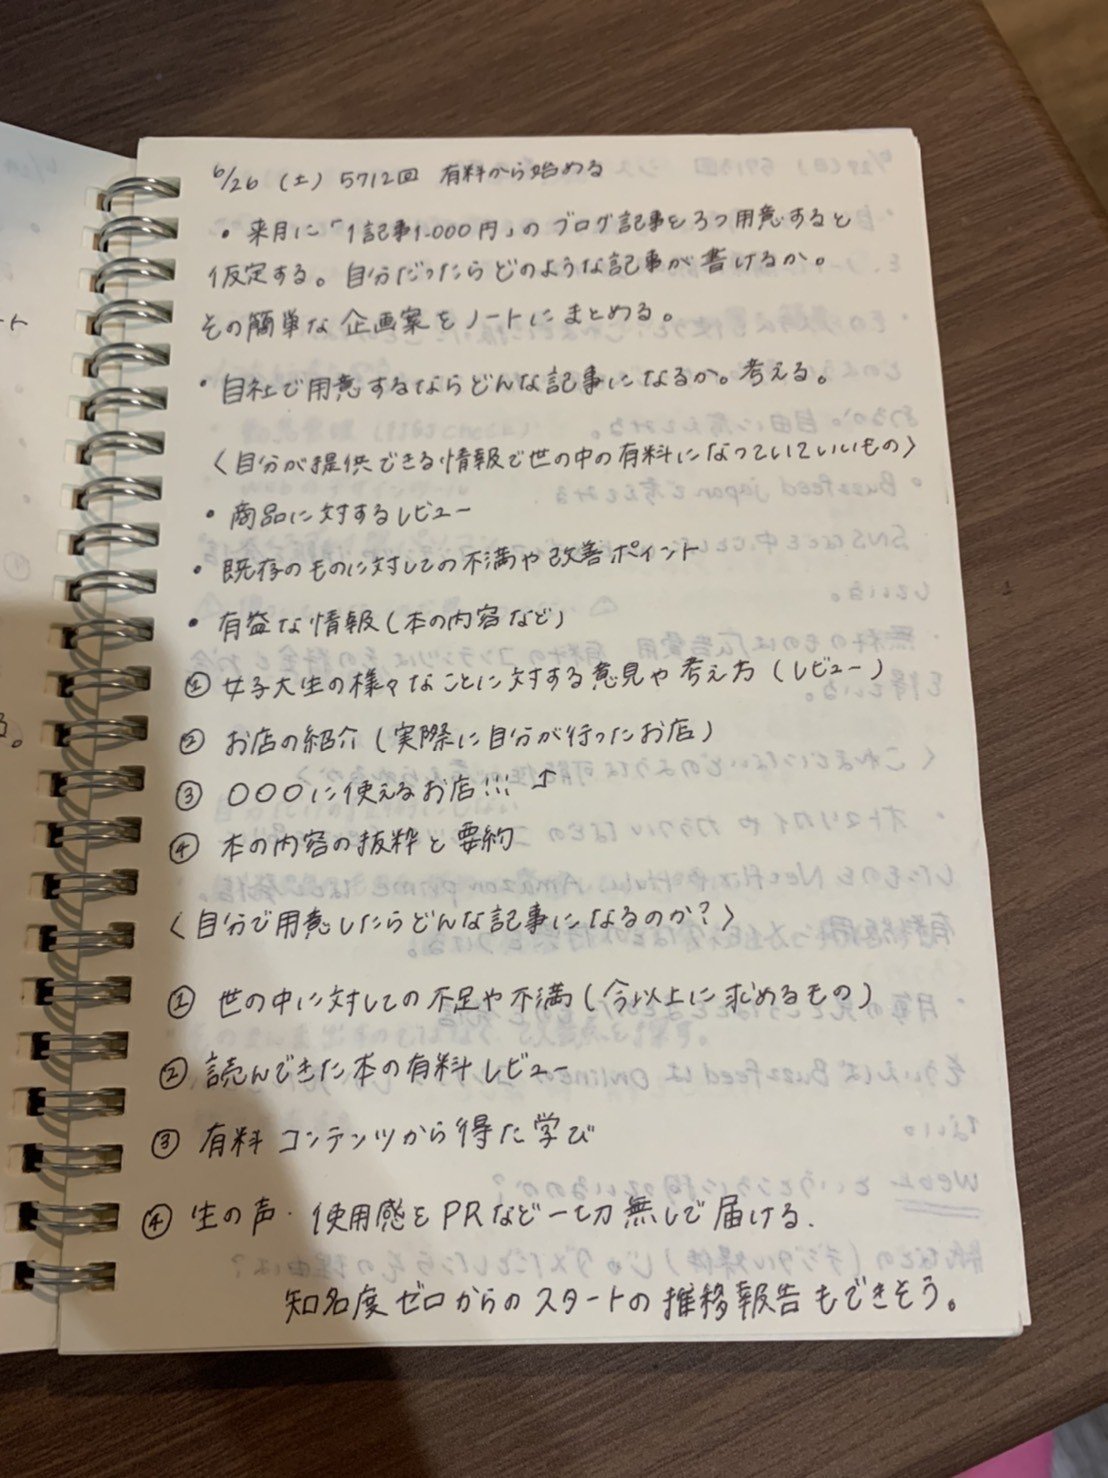 6/26 (土) 5712回 有料から始める
・来月に「1記事1.000円」のブログ記事を3つ用意すると
仮定する。自分だったらどのような記事が書けるか。
その簡単な企画案をノートにまとめる。
・自社で用意するならどんな記事になるか。考える。
〈自分が提供できる情報で世の中の有料になっていていいもの〉
・商品に対するレビュー
・既存のものに対しての不満や改善ポイント
・有益な情報(本の内容など)
① 女子大生の様々なことに対する意見や考え方(レビュー)
② お店の紹介(実際に自分が行ったお店)
③ 〇〇〇に使えるお店!!! ↑
④ 本の内容の抜粋と要約
〈自分で用意したらどんな記事になるのか?〉
① 世の中に対しての不足や不満(今以上に求めるもの)
② 読んできた本の有料レビュー
③ 有料コンテンツから得た学び
④ 生の声・使用感をPRなど一切無しで届ける.
知名度ゼロからのスタートの推移報告もできそう。
ート
。